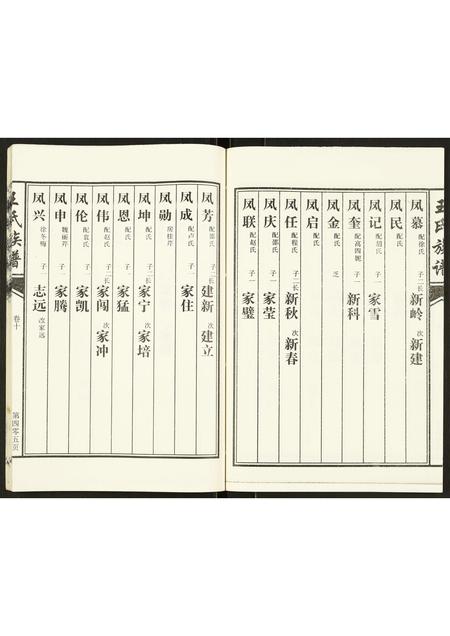 王氏族谱
凤慕 配徐氏 子二 长 新岭 次 新建
凤民 配氏
凤记 配胡氏 子一 家雪
凤奎 配高四妮 子一 新科
凤金 配氏 乏
凤启 配氏
凤任 配程氏 子二 长 新秋 次 新春
凤庆 配邵氏 子一 家莹
凤联 配赵氏 子一 家璧
凤芳 配邵氏 子二 长 建新 次 建立
凤成 配卢氏 子一 家住
凤勋 房桂芹
凤坤 配氏 子二 长 家宁 次 家培
凤恩 配氏 子一 家猛
凤伟 配赵氏 子二 长 家闯 次 家冲
凤伦 配袁氏 子一 家凯
凤申 魏丽芹 子一 家腾
凤兴 徐冬梅 子一 志远 改家远
王氏族谱
卷十
第四零五页